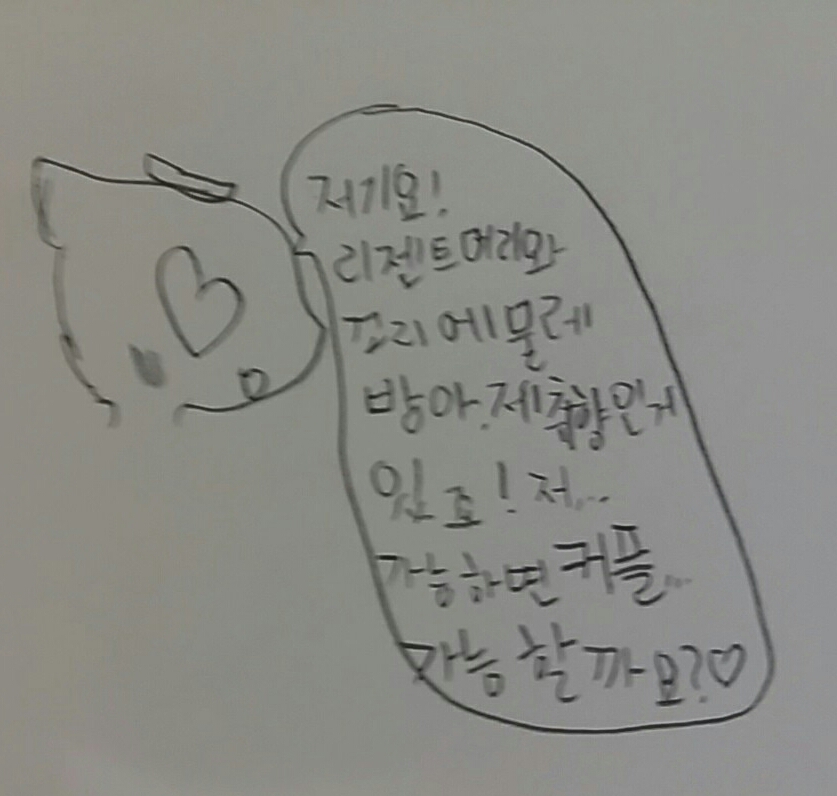 저기요!
리젠트머리와
꼬리에물레
방아.제취향인거
있죠!저...
가능하면커플...
가능할까요?♡